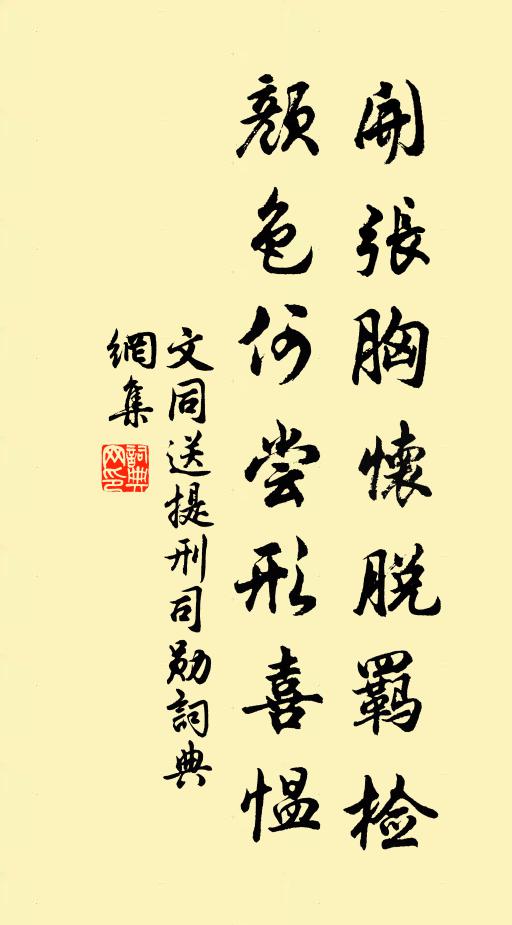 開張胸懷脫羈檢
顏色何尝形喜愠
文同送提刑司勋詞典
網集
詞典网印